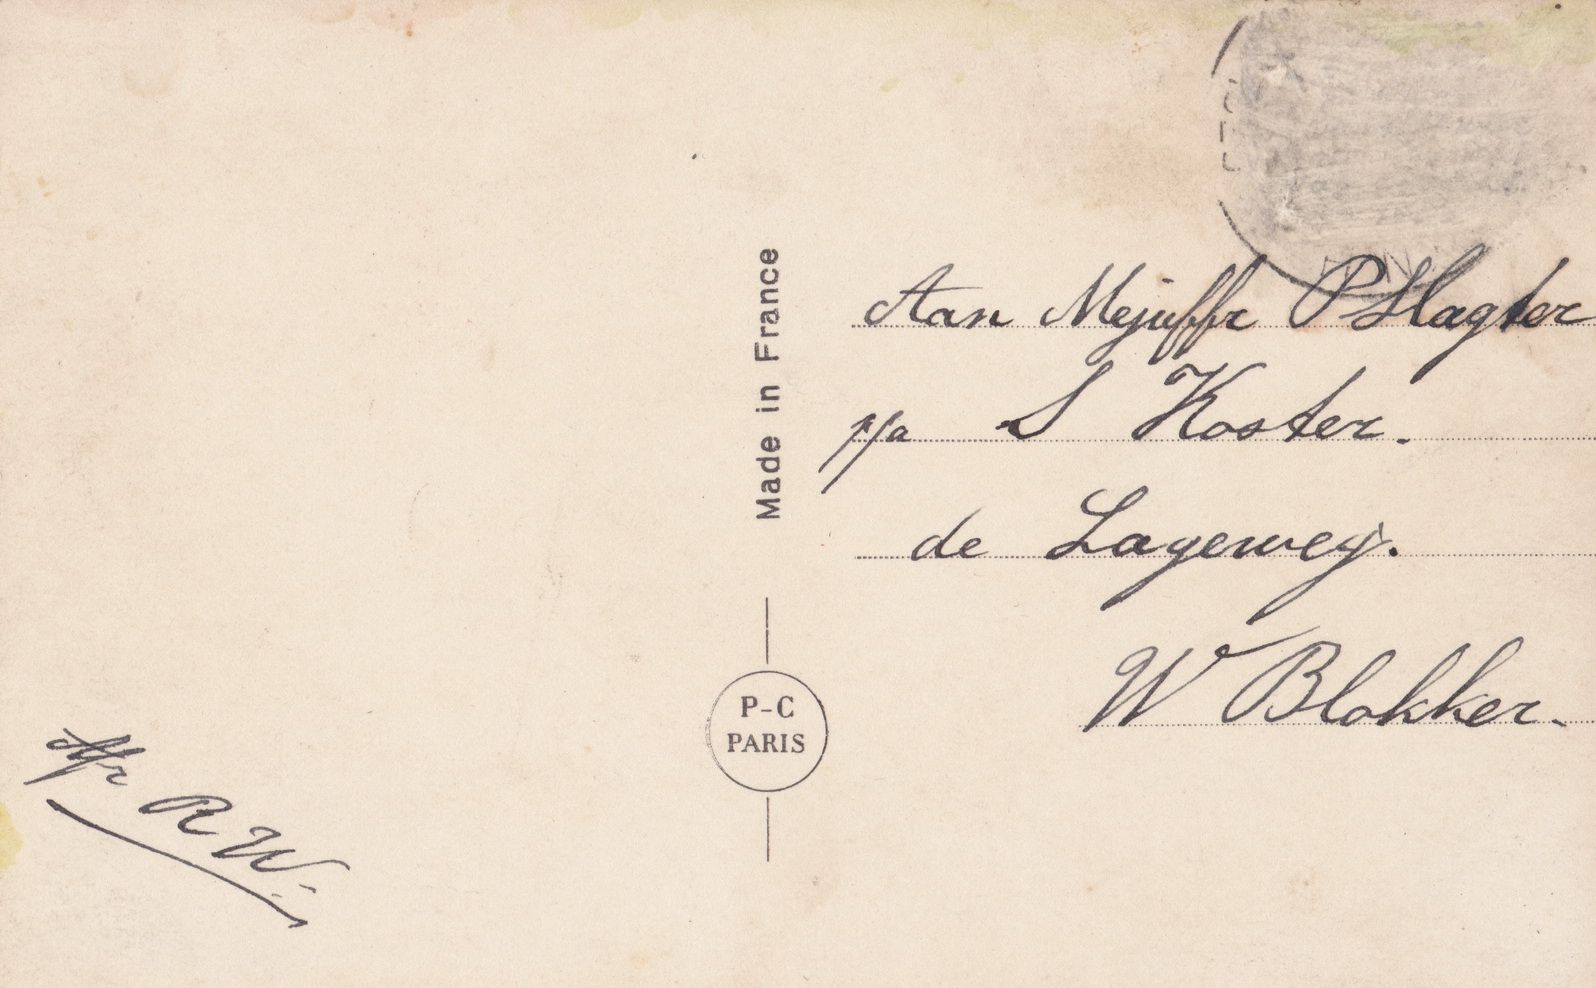 Made in France
P-C
PARIS
Aan Mejuffr P Slagter
p/a S Koster.
de Lageweg.
W Blokker.
Afr R W.